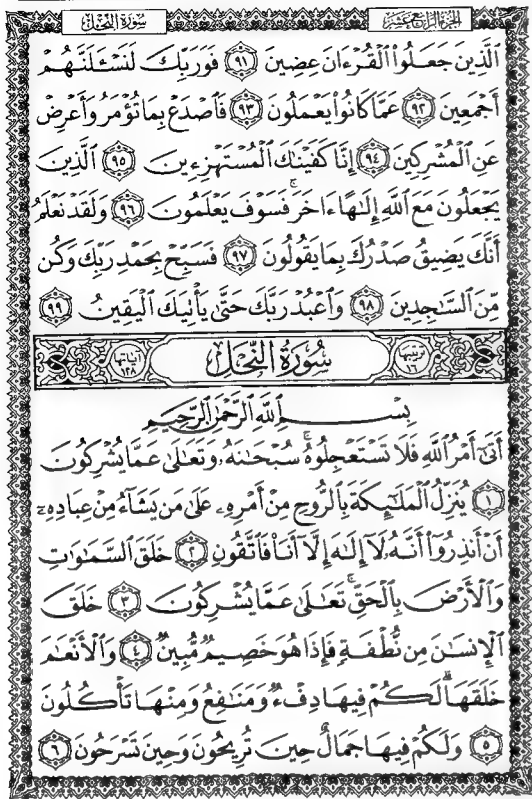 الجزء الرابع عشر
سورة النحل
الَّذِينَ جَعَلُوا۟ الْقُرْءَانَ عِضِينَ ٩١ فَوَرَبِّكَ لَنَسْـَٔلَنَّهُمْ
أَجْمَعِينَ ٩٢ عَمَّا كَانُوا۟ يَعْمَلُونَ ٩٣ فَاصْدَعْ بِمَا تُؤْمَرُ وَأَعْرِضْ
عَنِ الْمُشْرِكِينَ ٩٤ إِنَّا كَفَيْنَٰكَ الْمُسْتَهْزِءِينَ ٩٥ الَّذِينَ
يَجْعَلُونَ مَعَ اللَّهِ إِلَٰهًا ءَاخَرَ ۚ فَسَوْفَ يَعْلَمُونَ ٩٦ وَلَقَدْ نَعْلَمُ
أَنَّكَ يَضِيقُ صَدْرُكَ بِمَا يَقُولُونَ ٩٧ فَسَبِّحْ بِحَمْدِ رَبِّكَ وَكُن
مِّنَ السَّٰجِدِينَ ٩٨ وَاعْبُدْ رَبَّكَ حَتَّىٰ يَأْتِيَكَ الْيَقِينُ ٩٩
ترتيبها ١٦ سُورَةُ النَّحْلِ آياتها ١٢٨
بِسْمِ اللَّهِ الرَّحْمَٰنِ الرَّحِيمِ
أَتَىٰٓ أَمْرُ اللَّهِ فَلَا تَسْتَعْجِلُوهُ ۚ سُبْحَٰنَهُۥ وَتَعَٰلَىٰ عَمَّا يُشْرِكُونَ
١ يُنَزِّلُ الْمَلَٰٓئِكَةَ بِالرُّوحِ مِنْ أَمْرِهِۦ عَلَىٰ مَن يَشَآءُ مِنْ عِبَادِهِۦٓ
أَنْ أَنذِرُوٓا۟ أَنَّهُۥ لَآ إِلَٰهَ إِلَّآ أَنَا۠ فَاتَّقُونِ ٢ خَلَقَ السَّمَٰوَٰتِ
وَالْأَرْضَ بِالْحَقِّ ۚ تَعَٰلَىٰ عَمَّا يُشْرِكُونَ ٣ خَلَقَ
الْإِنسَٰنَ مِن نُّطْفَةٍ فَإِذَا هُوَ خَصِيمٌ مُّبِينٌ ٤ وَالْأَنْعَٰمَ
خَلَقَهَا ۗ لَكُمْ فِيهَا دِفْءٌ وَمَنَٰفِعُ وَمِنْهَا تَأْكُلُونَ
٥ وَلَكُمْ فِيهَا جَمَالٌ حِينَ تُرِيحُونَ وَحِينَ تَسْرَحُونَ ٦